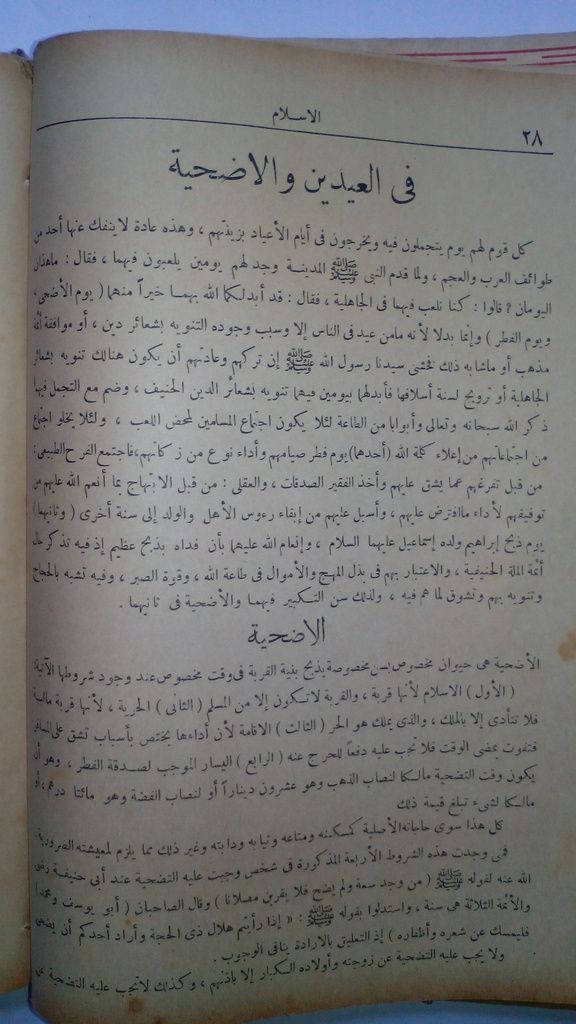 الاسلام
٢٨
فى العيدين والاضحية
كل قوم لهم يوم يتجملون فيه ويخرجون فى أيام الأعياد بزينتهم ، وهذه عادة لا ينفك عنها أحد من
طوائف العرب والعجم ، ولما قدم النبى ﷺ المدينة وجد لهم يومين يلعبون فيهما ، فقال : ماهذان
اليومان ؟ قالوا : كنا نلعب فيهما فى الجاهلية ، فقال : قد أبدلكما الله بهما خيراً منهما ( يوم الأضحى ،
ويوم الفطر ) وإنما بدلا لأنه مامن عيد فى الناس إلا وسبب وجوده التنويه بشعائر دين ، أو موافقة أئمة
مذهب أو ماشابه ذلك فخشى سيدنا رسول الله ﷺ إن تركهم وعادتهم أن يكون هنالك تنويه بشعائر
الجاهلية أو ترويج لسنة أسلافها فأبدلهما بيومين فيهما تنويه بشعائر الدين الحنيف ، وضم مع التجمل فيها
ذكر الله سبحانه وتعالى وأبوابا من الطاعة لئلا يكون اجتماع المسلمين لمحض اللعب ، ولئلا يخلو اجتماع
من اجتماعاتهم من إعلاء كلمة الله (أحدهما) يوم فطر صيامهم وأداء نوع من زكاتهم ، فاجتمع الفرح الطبيعى :
من قبل تفرغهم عما يشق عليهم وأخذ الفقير الصدقات ، والعقلى : من قبل الابتهاج بما أنعم الله عليهم من
توفيقهم لأداء ما افترض عليهم ، وأسبل عليهم من إبقاء رءوس الأهل والولد إلى سنة أخرى ( وثانيهما )
يوم ذبح إبراهيم ولده إسماعيل عليهما السلام ، وإنعام الله عليهما بأن فداه بذبح عظيم إذ فيه تذكر حال
أئمة الملة الحنيفية ، والاعتبار بهم فى بذل المهج والأموال فى طاعة الله ، وقوة الصبر ، وفيه تشبه بالحجاج
وتنويه بهم وتشوق لما هم فيه ، ولذلك سن التكبير فيهما والأضحية فى ثانيهما .
الاضحية
الأضحية هى حيوان مخصوص بسن مخصوصة يذبح بنية القربة فى وقت مخصوص عند وجود شروطها الآتية :
( الأول ) الاسلام لأنها قربة ، والقربة لاتكون إلا من المسلم ( الثانى ) الحرية ، لأنها قربة مالية
فلا تتأدى إلا بالملك ، والذى يملك هو الحر ( الثالث ) الاقامة لأن أداءها يختص بأسباب تشق على المسافر
فتفوت بمضى الوقت فلا تجب عليه دفعاً للحرج عنه ( الرابع ) اليسار الموجب لصدقة الفطر ، وهو أن
يكون وقت التضحية مالكا لنصاب الذهب وهو عشرون ديناراً أو لنصاب الفضة وهو مائتا درهم ، أو
مالكا لشىء تبلغ قيمة ذلك
كل هذا سوى حاجاته الأصلية كمسكنه ومتاعه وثيابه ودابته وغير ذلك مما يلزم لمعيشته الضرورية .
فمتى وجدت هذه الشروط الأربعة المذكورة فى شخص وجبت عليه التضحية عند أبى حنيفة رضى
الله عنه لقوله ﷺ ( من وجد سعة ولم يضح فلا يقربن مصلانا ) وقال الصاحبان ( أبو يوسف ومحمد )
والأئمة الثلاثة هى سنة ، واستدلوا بقوله ﷺ : « إذا رأيتم هلال ذى الحجة وأراد أحدكم أن يضحى
فليمسك عن شعره وأظفاره ) إذ التعليق بالارادة ينافى الوجوب .
ولا يجب عليه التضحية عن زوجته وأولاده الكبار إلا باذنهم ، وكذلك لاتجب عليه التضحية عن